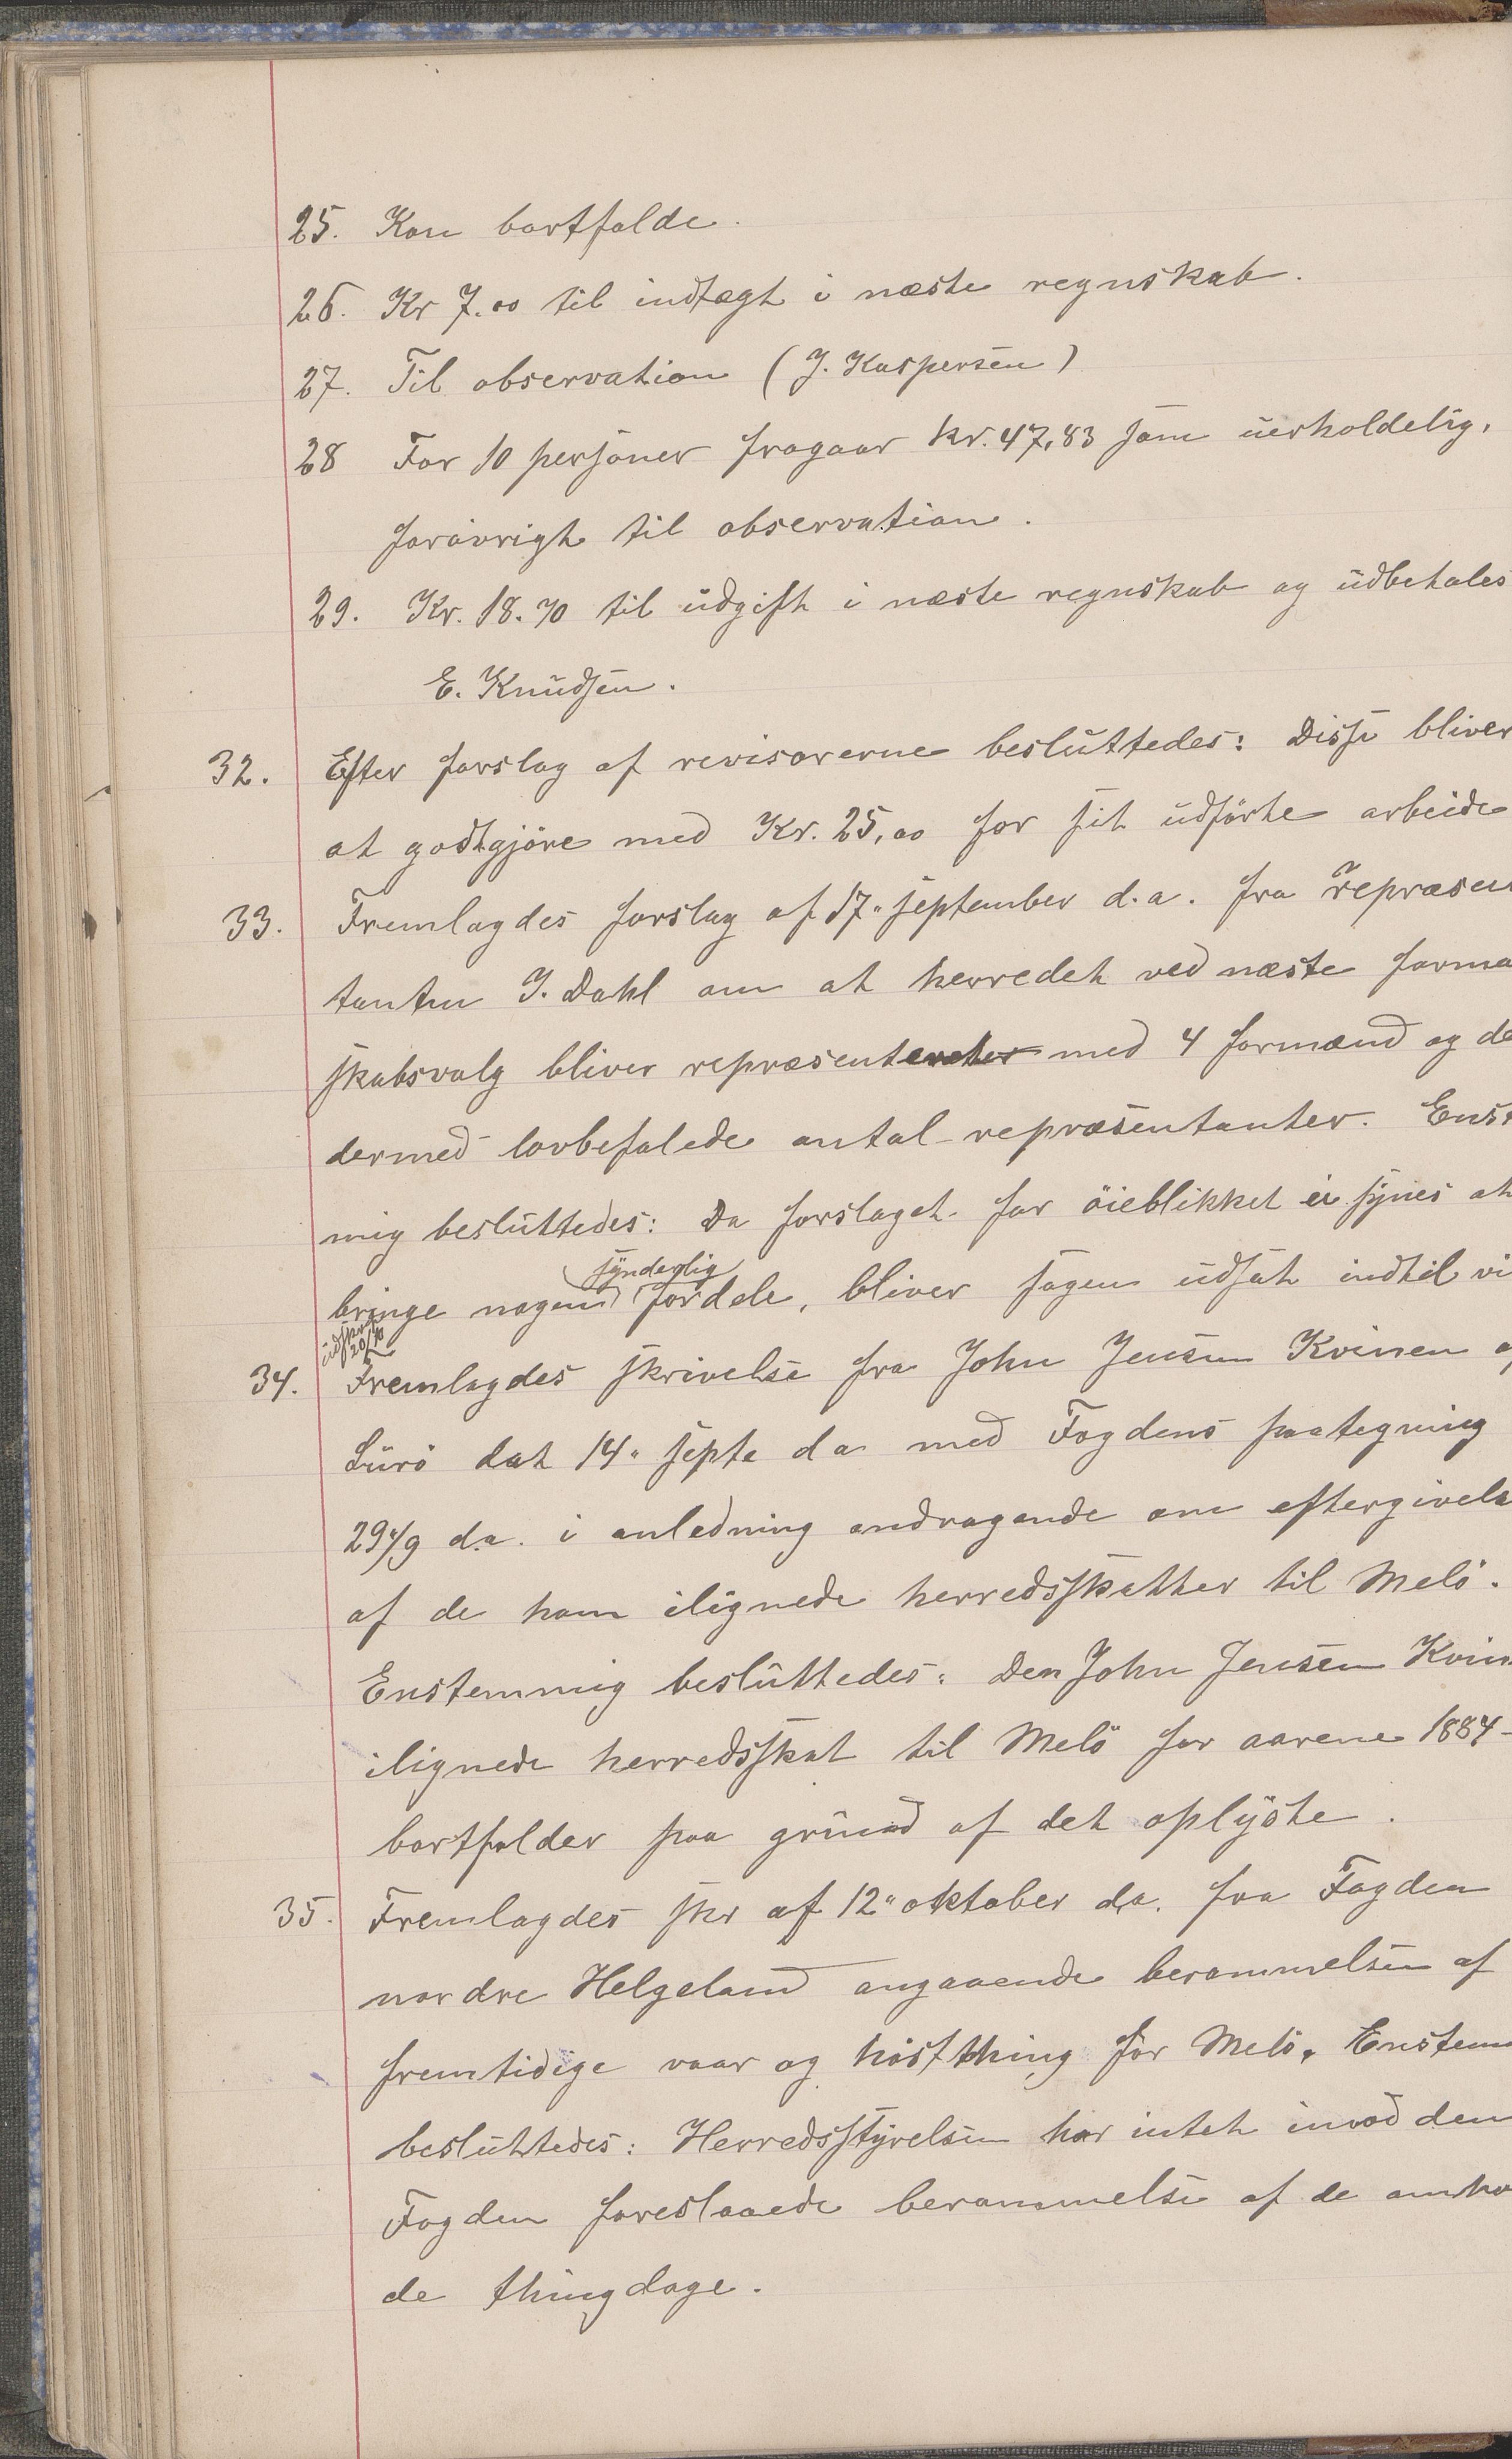 25. Kan bortfalde.
26. Kr 7.00 til indtægt i næste regnskab.
27. Til observation (J. Kaspersen)
28 For 10 personer fragaar kr. 47,83 som uerholdelig,
forøvrigt til observation.
29. Kr. 18.70 til udgift i næste regnskab og udbetales
E. Knudsen.
32. Efter forslag af revisorerne besluttedes: Disse bliver
at godtgjøre med Kr. 25,00 for sit udførte arbeide
33. Fremlagdes forslag af 17" september d.a. fra repræsen
tanten J. Dahl om at herredet ved næste forma
skabsvalg bliver repræsenteret med 4 formænd og de
dermed lovbefalede antal repræsentanter. Enst
mig besluttedes: Da forslaget for øieblikket ei synes at
synderlig
bringe nogen fordele, bliver sagen udsat indtil vi
20/10
34. Fremlagdes skrivelse fra John Jensen Kvinen af
Lurö dat 14" septe da med Fogdens paategning
29/9 d.a. i anledning andragende om eftergivels
af de ham ilignede herredsskatter til Melö.
Enstemmig besluttedes: Den John Jensen Kvin
ilignede herredsskat til Melö for aarene 1884-
bortfalder paa grund af det oplyste.
35. Fremlagdes skr af 12" oktober da. fra Fogden
nordre Helgeland angaaende berammelsen af
fremtidige vaar og høstthing for Melö. Enstem
besluttedes: Herredsstyrelsen har intet imod den
Fogden foreslaaede berammelse af de omha
de thingdage.